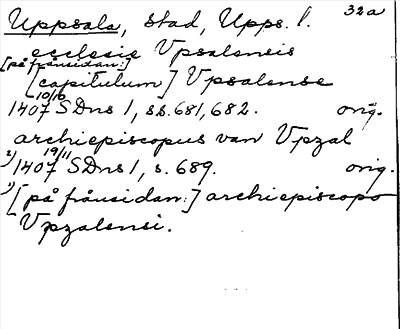 Uppsala, stad, Upps. l. 32a
ecclesie Vpsalensis
[på frånsidan:]
[capitulum] Vpsalense
10/10
1407 SDns 1, ss. 681, 682. orig.
archiepiscopus van Vpzal
19/11
2) 1407 SDns 1, s. 689. orig.
1) [på frånsidan:] archiepiscopo
Vpzalensi.